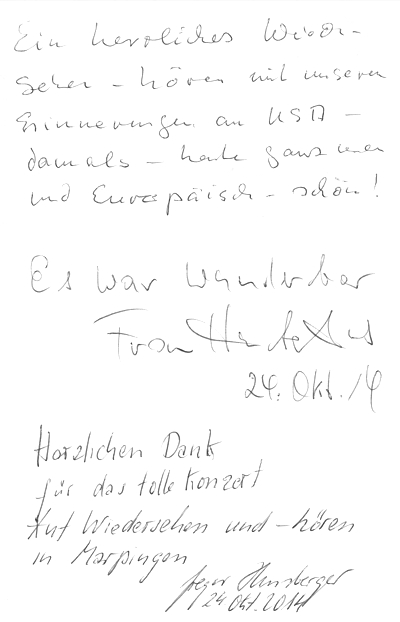 Ein herzliches Wieder-
sehen - hören mit unseren
Erinnerungen an USA -
damals - heute ganz neu
und Europäisch - schön!
Es war wunderbar
24. Okt. 14
Herzlichen Dank
für das tolle Konzert
Auf Wiedersehen und -hören
in Marpingen
24 Okt. 2014